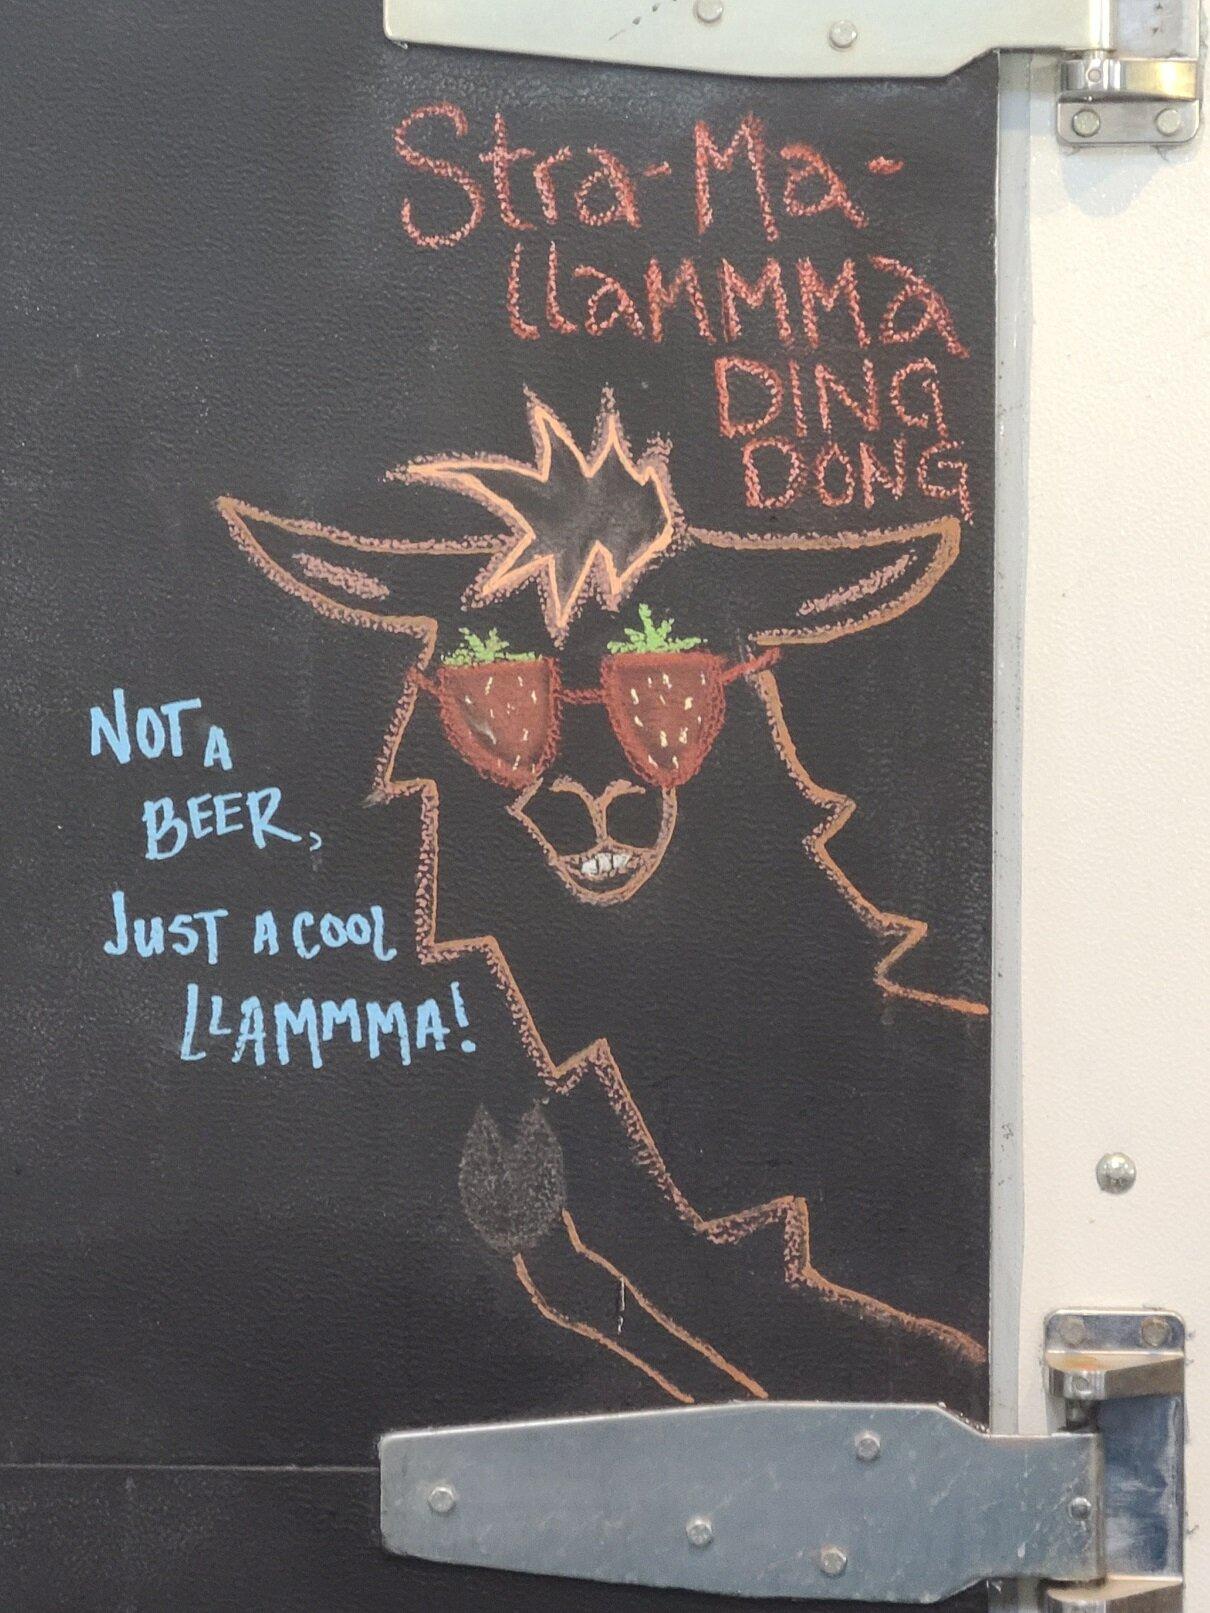 Stra-Ma-
LLaMMMa
DING
DONG
NOT A
BEER,
JUST A COOL
LLAMMMA!